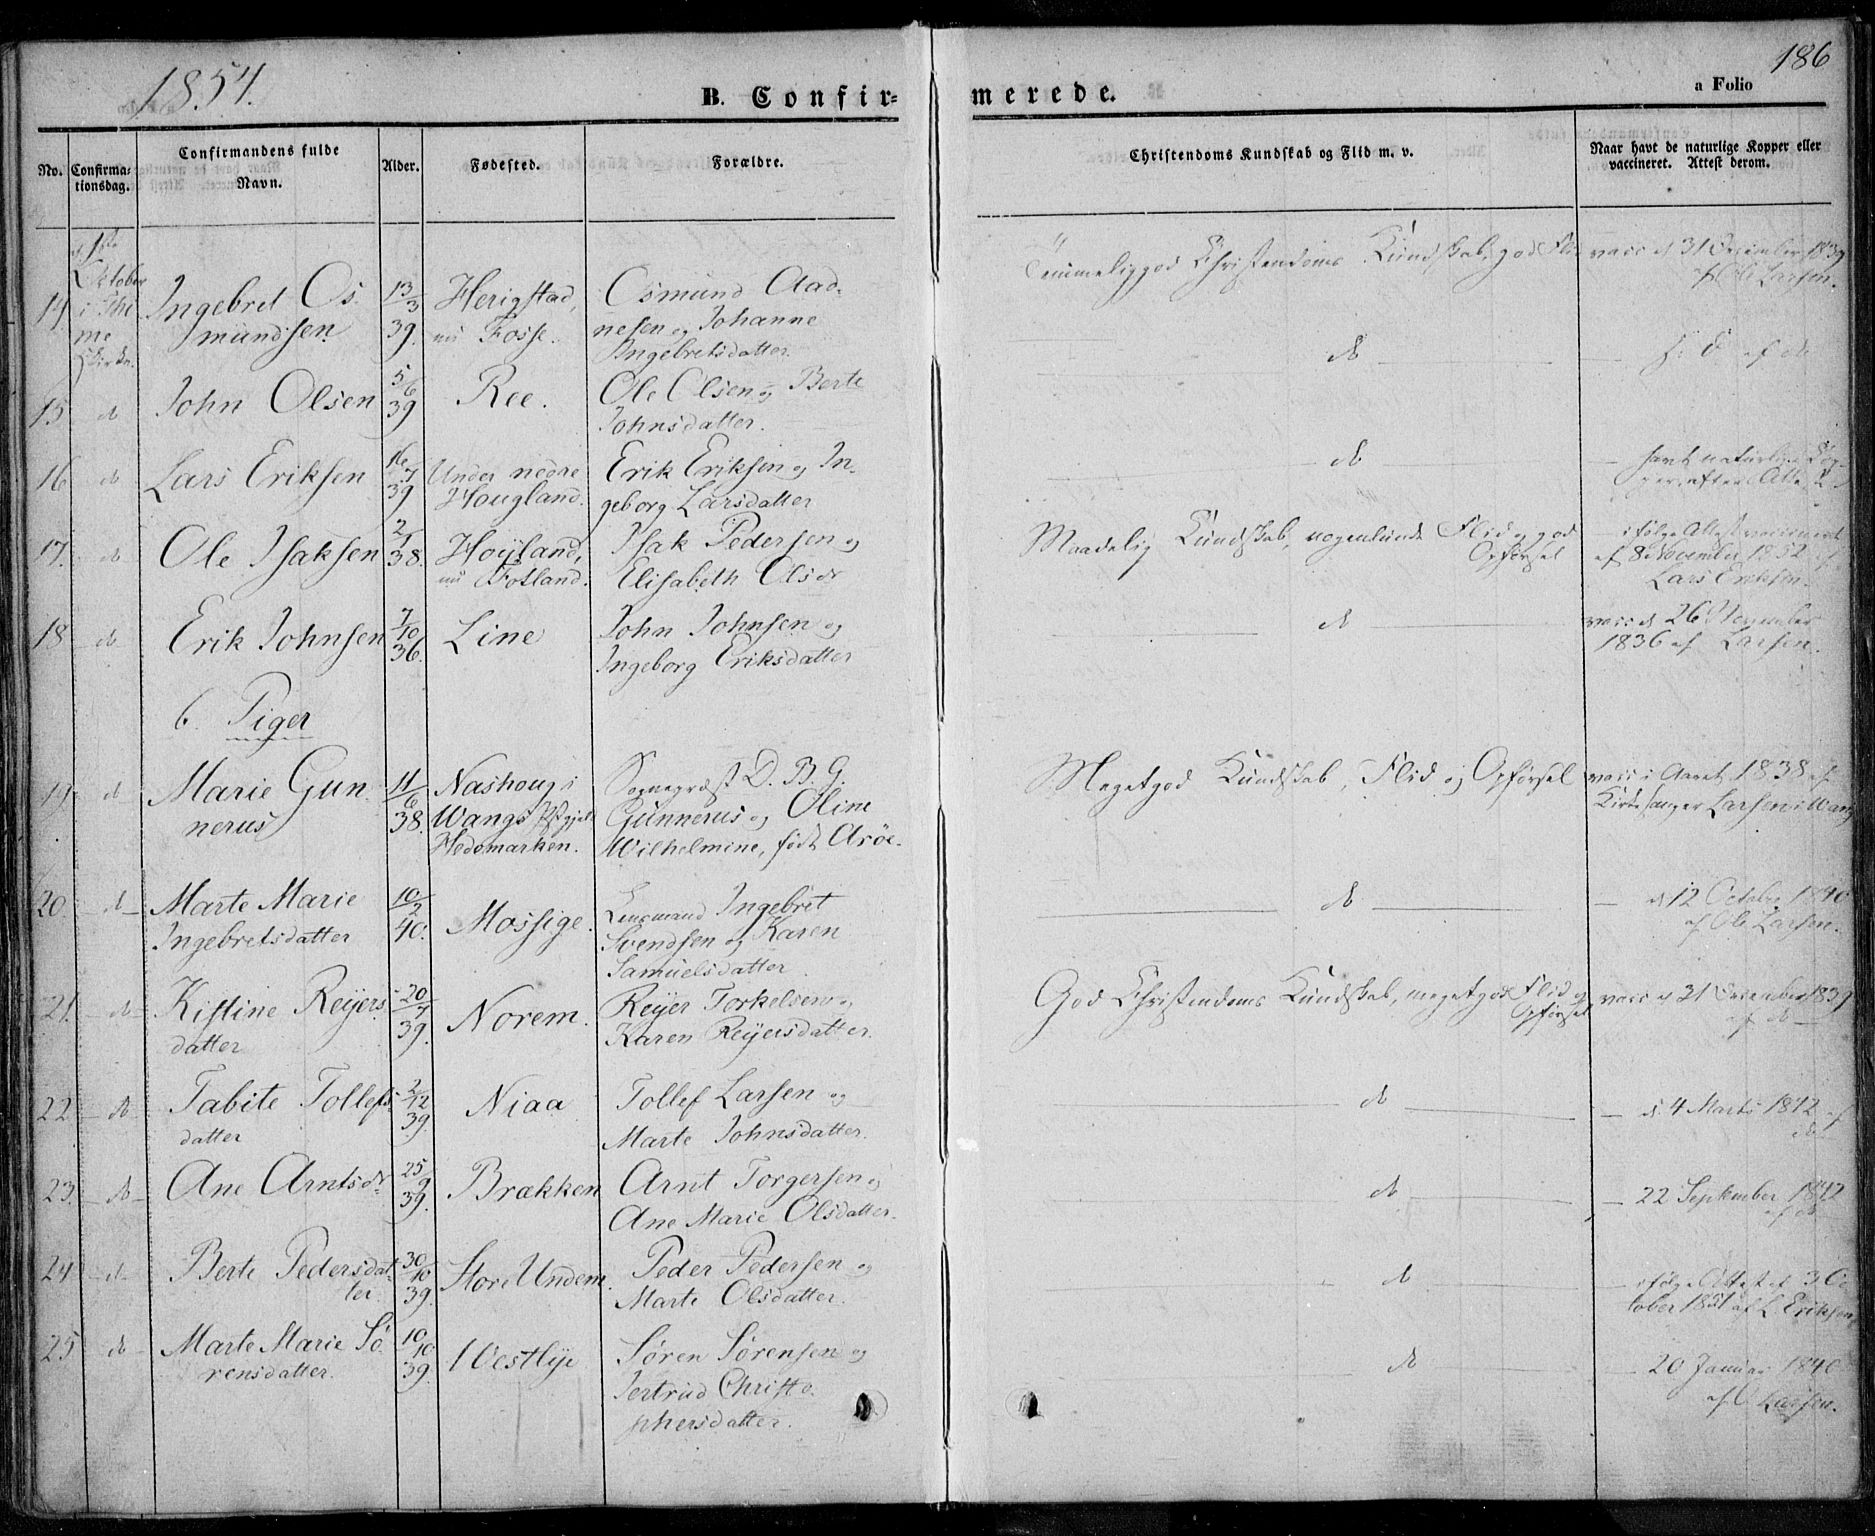 1854.
186
B. Confir-
merede.
a Folio
No.
Confirma-
tionsdag.
Confirmandens fulde
Navn.
Alder.
Fødested.
Forældre.
Christendoms Kundskab og Flid m. v.
Naar havt de naturlige Kopper eller
vaccineret. Attest derom.
d 1ste
Oktober
i Thi
me
Kirke.
14.
Ingebret Os-
mundsen.
13/3
39.
Herigstad,
nu Fosse.
Osmund Aad-
nesen og Johanne
Ingebretsdatter.
Temmelig god Christendoms Kundskab, god Flid
vacc d 31 December 1839
af Ole Larsen.
15
do
John Olsen
5/6
39
Ree.
Ole Olsen og Berte
Johnsdatter.
do
af do
16
do
Lars Eriksen
16/7
39
Under nedre
Hougland.
Erik Eriksen og In-
geborg Larsdatter
do
havt naturlige Kop-
per, efter Atte
17.
do
Ole Isaksen
2/1
38.
Hoÿland,
nu Fotland.
Isak Pedersen og
Elisabeth Olsdr
Maadelig Kundskab, nogenlunde Flid og god
Opførsel
ifølge Attest vaccineret
af 8 November 1852 af
Lars Eriksen.
18
do
Erik Johnsen
7/10
36.
Line
John Johnsen og
Ingeborg Eriksdatter
do
vacc d 26 November
1836 af Larsen.
b. Piger
19.
d
Marie Gun-
nerus
11/6
38.
Nashoug i
Wangs Pstgjel
Hedemarken.
Sognepræst D. B. G.
Gunnerus og Oline
Wilhelmine, født Arøe.
Meget god Kundskab, Flid og Opførsel
vacc i Aaret 1838 af
Kirkesanger Larsen i Wang
20.
d
Marte Marie
Ingebretsdatter
10/2
40.
Mossige.
Lensmand Ingebret
Svendsen og Karen
Samuelsdatter.
do
d 12 October 1840
af Ole Larsen.
21.
do
Kistine Reÿers-
datter
20/7
39.
Norem.
Reÿer Torkelsen og
Karen Reÿersdatter.
God Christendoms Kundskab, meget god Flid og
Opførsel
vacc d 31 December 1839
af do
22
do
Tabite Tollefs-
datter
2/12
39.
Niaa
Tollef Larsen og
Marte Johnsdatter.
do
d. 4 Marts 1842 af
do
23.
do
Ane Arntsdr
25/9
39.
Brækken
Arnt Torgersen og
Ane Marie Olsdatter.
do
22 September 1842
af do
24
d
Berte Pedersdat-
ter.
30/10
39.
Store Undem.
Peder Pedersen og
Marte Olsdatter.
do
ifølge Attest d 3 Oc
tober 1851 af L. Eriksen,
25
do
Marte Marie Sø-
rensdatter.
10/10
39.
Westlÿe
Søren Sørensen og
Jertrud Christo-
phersdatter.
do
20 Januar 1840
af O Larsen.